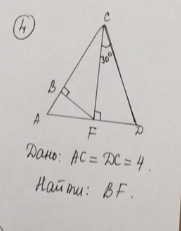 4
C
30°
B
A
F
D
Дано: AC = DC = 4.
Найти: BF.